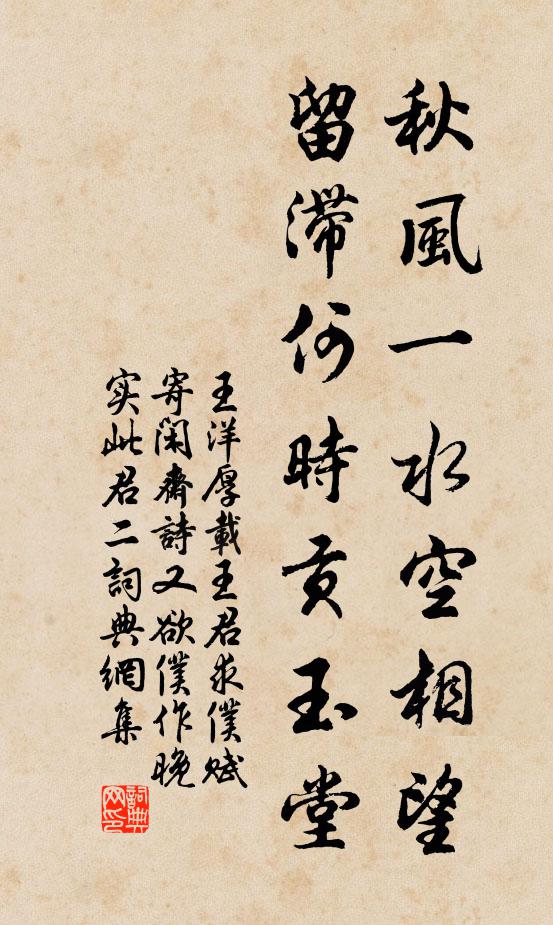 秋風一水空相望
留滯何時貢玉堂
王洋厚載王君求僕賦
寄閑齋詩又欲僕作晚
实此君二詞典網集
詞典网印